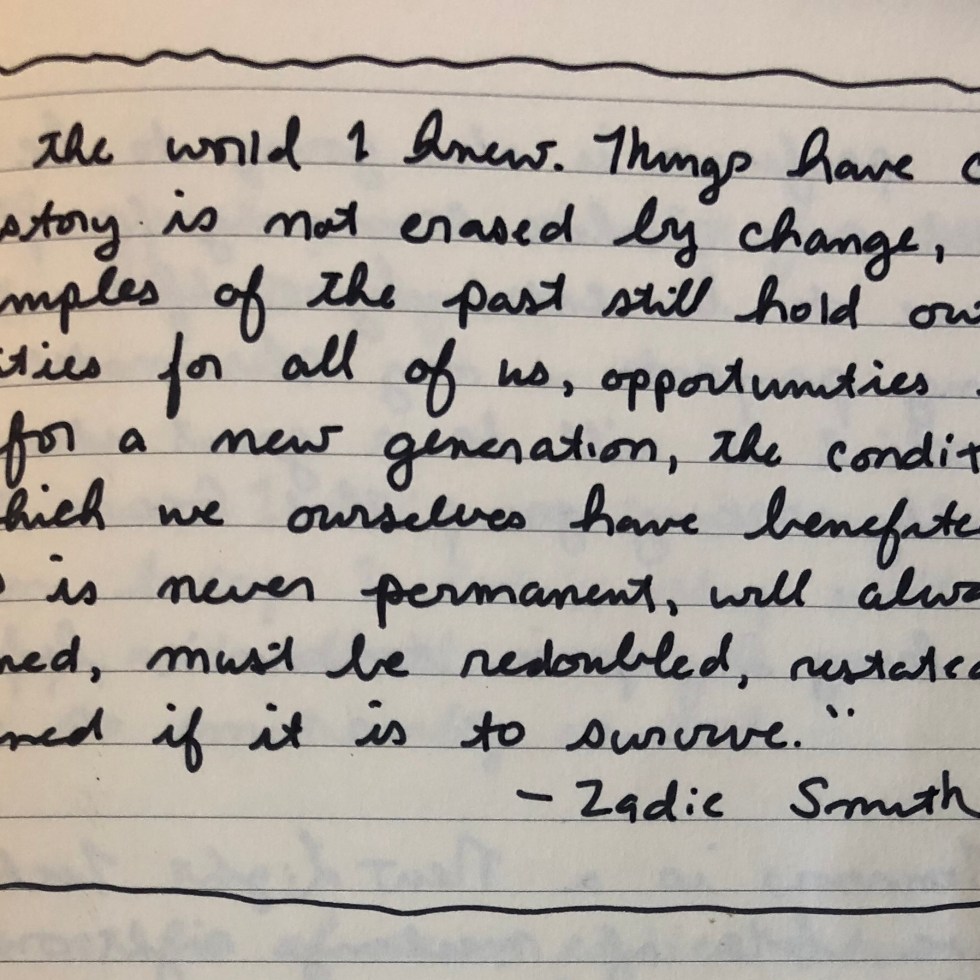 the world I knew. Things have c
story is not erased by change,
mples of the past still hold ou
ities for all of us, opportunities
for a new generation, the condit
hich we ourselves have benefite
s is never permanent, will alwa
ned, must be redoubled, restated
ned if it is to survive."
- Zadie Smith